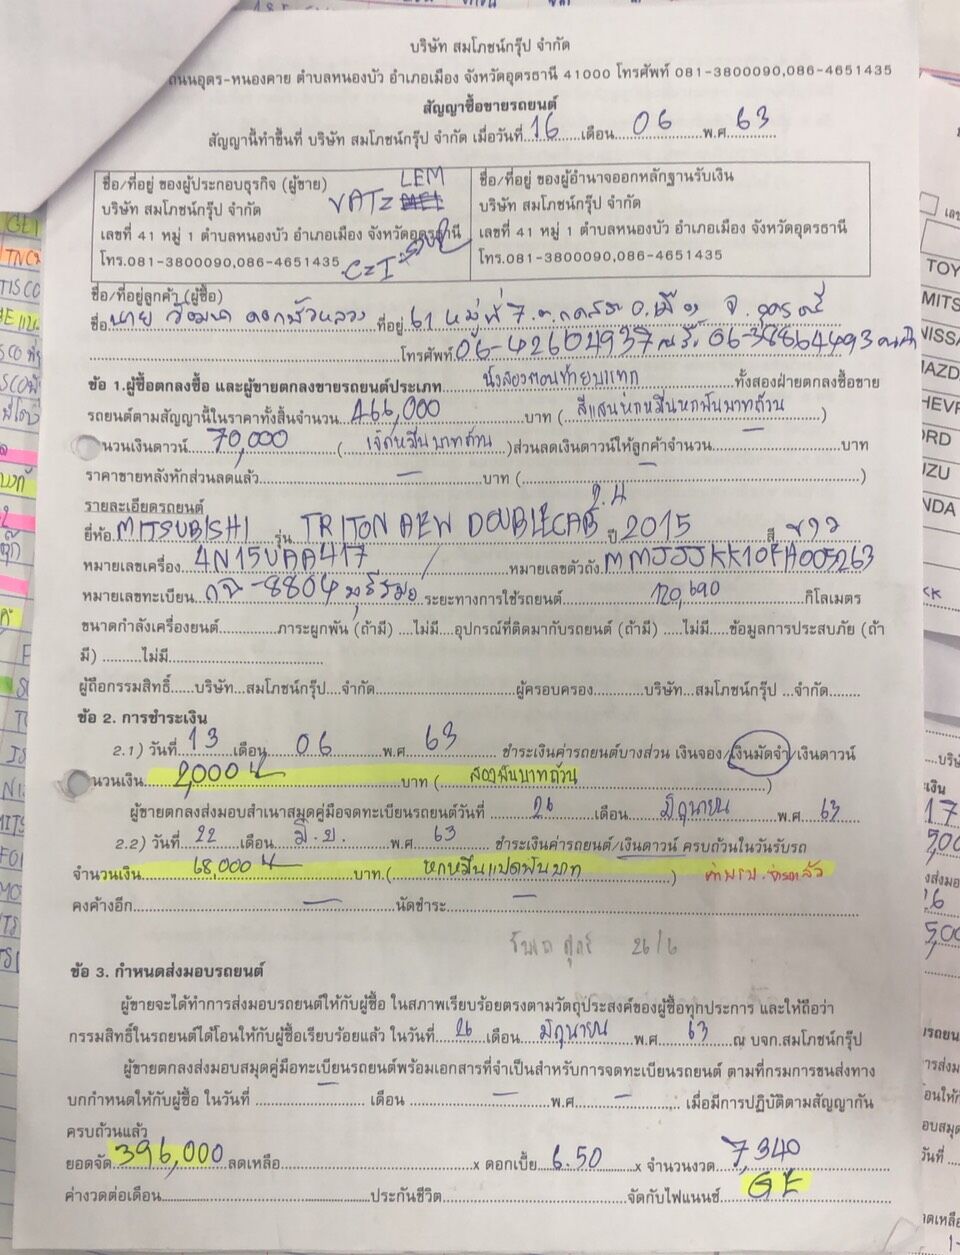 บริษัท สมโภชน์กรุ๊ป จำกัด
ถนนอุดร-หนองคาย ตำบลหนองบัว อำเภอเมือง จังหวัดอุดรธานี 41000 โทรศัพท์ 081-3800090,086-4651435
สัญญาซื้อขายรถยนต์
สัญญานี้ทำขึ้นที่ บริษัท สมโภชน์กรุ๊ป จำกัด เมื่อวันที่ 16 เดือน 06 พ.ศ 63
ชื่อ/ที่อยู่ ของผู้ประกอบธุรกิจ (ผู้ขาย) LEM
บริษัท สมโภชน์กรุ๊ป จำกัด VAT=
เลขที่ 41 หมู่ 1 ตำบลหนองบัว อำเภอเมือง จังหวัดอุดรธานี
โทร.081-3800090,086-4651435
ชื่อ/ที่อยู่ ของผู้อำนาจออกหลักฐานรับเงิน
บริษัท สมโภชน์กรุ๊ป จำกัด
เลขที่ 41 หมู่ 1 ตำบลหนองบัว อำเภอเมือง จังหวัดอุดรธานี
โทร.081-3800090,086-4651435
ชื่อ/ที่อยู่ลูกค้า (ผู้ซื้อ)
ชื่อ นาย ที่อยู่ 61 หมู่ที่ 7 อ.เมือง จ.อุดรธานี
โทรศัพท์ 06-42604937
ข้อ 1.ผู้ซื้อตกลงซื้อ และผู้ขายตกลงขายรถยนต์ประเภท นั่งสองตอนท้ายบรรทุก ทั้งสองฝ่ายตกลงซื้อขาย
รถยนต์ตามสัญญานี้ในราคาทั้งสิ้นจำนวน 466,000 บาท ( สี่แสนหกหมื่นหกพันบาทถ้วน )
จำนวนเงินดาวน์ 70,000 ( เจ็ดหมื่นบาทถ้วน )ส่วนลดเงินดาวน์ให้ลูกค้าจำนวน - บาท
ราคาขายหลังหักส่วนลดแล้ว - บาท ( - )
รายละเอียดรถยนต์ 2.4
ยี่ห้อ MITSUBISHI รุ่น TRITON NEW DOUBLECAB ปี 2015 สี ขาว
หมายเลขเครื่อง 4N15UAA417 หมายเลขตัวถัง MMJJJKK10FH005263
หมายเลขทะเบียน 8804 บุรีรัมย์ ระยะทางการใช้รถยนต์ 120,690 กิโลเมตร
ขนาดกำลังเครื่องยนต์ ภาระผูกพัน (ถ้ามี) ....ไม่มี....อุปกรณ์ที่ติดมากับรถยนต์ (ถ้ามี) .....ไม่มี.....ข้อมูลการประสบภัย (ถ้า
มี) ..........ไม่มี
ผู้ถือกรรมสิทธิ์......บริษัท...สมโภชน์กรุ๊ป....จำกัด ผู้ครอบครอง บริษัท...สมโภชน์กรุ๊ป ...จำกัด
ข้อ 2. การชำระเงิน
2.1) วันที่ 13 เดือน 06 พ.ศ 63 ชำระเงินค่ารถยนต์บางส่วน เงินจอง/เงินมัดจำ/เงินดาวน์
จำนวนเงิน 2,000 บาท ( สองพันบาทถ้วน )
ผู้ขายตกลงส่งมอบสำเนาสมุดคู่มือจดทะเบียนรถยนต์วันที่ 26 เดือน มิถุนายน พ.ศ 63
2.2) วันที่ 22 เดือน มิ.ย. พ.ศ 63 ชำระเงินค่ารถยนต์/เงินดาวน์ ครบถ้วนในวันรับรถ
จำนวนเงิน 68,000 บาท ( หกหมื่นแปดพันบาท )
คงค้างอีก - นัดชำระ -
26/6
ข้อ 3. กำหนดส่งมอบรถยนต์
ผู้ขายจะได้ทำการส่งมอบรถยนต์ให้กับผู้ซื้อ ในสภาพเรียบร้อยตรงตามวัตถุประสงค์ของผู้ซื้อทุกประการ และให้ถือว่า
กรรมสิทธิ์ในรถยนต์ได้โอนให้กับผู้ซื้อเรียบร้อยแล้ว ในวันที่ 26 เดือน มิถุนายน พ.ศ 63 ณ บจก.สมโภชน์กรุ๊ป
ผู้ขายตกลงส่งมอบสมุดคู่มือทะเบียนรถยนต์พร้อมเอกสารที่จำเป็นสำหรับการจดทะเบียนรถยนต์ ตามที่กรมการขนส่งทาง
บกกำหนดให้กับผู้ซื้อ ในวันที่ - เดือน - พ.ศ - เมื่อมีการปฏิบัติตามสัญญากัน
ครบถ้วนแล้ว
ยอดจัด 396,000 ลดเหลือ x ดอกเบี้ย 6.50 x จำนวนงวด 7,340
ค่างวดต่อเดือน ประกันชีวิต จัดกับไฟแนนซ์ GE